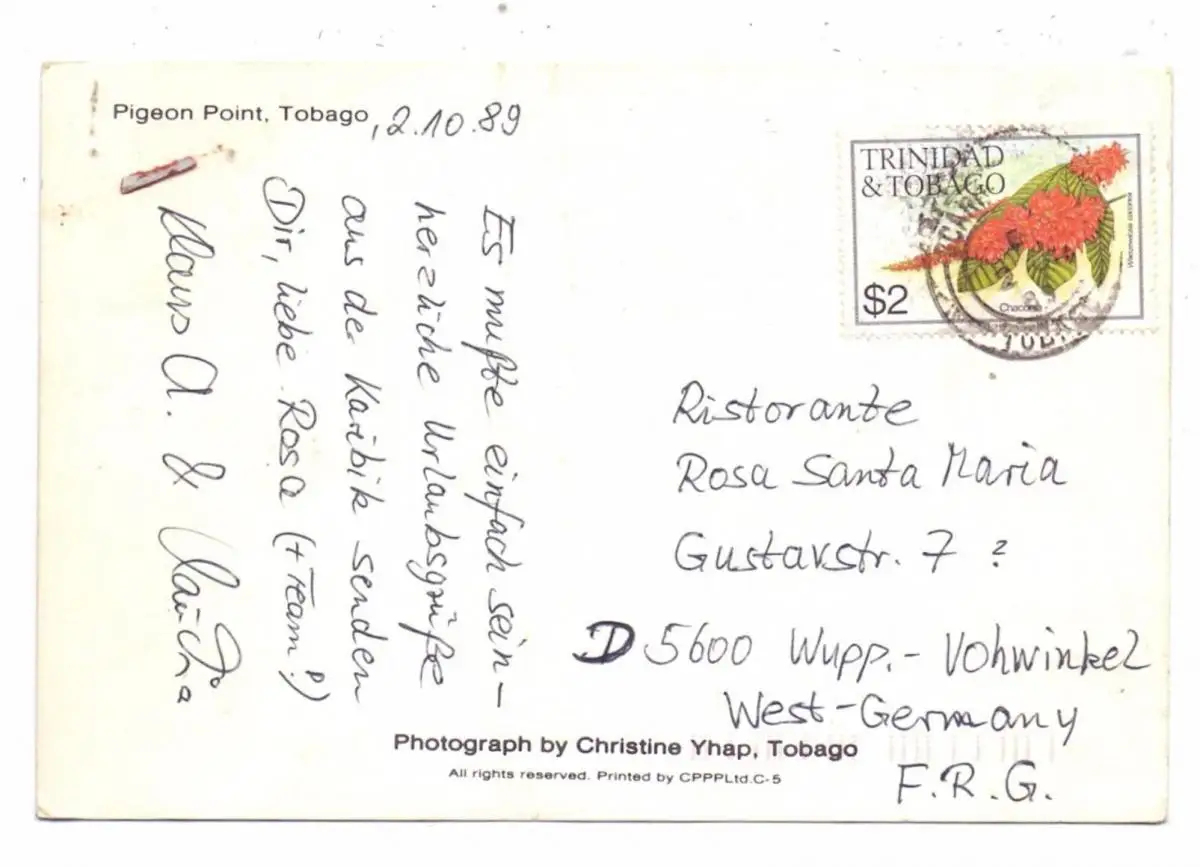 Pigeon Point, Tobago, 2.10.89
Es mußte einfach sein –
herzliche Urlaubsgrüße
aus der Karibik senden
Dir, liebe Rosa (+ Team!)
Klaus A. &
TRINIDAD
& TOBAGO
$2
Chaconia
Ristorante
Rosa Santa Maria
Gustavstr. 7 ?
D 5600 Wupp.- Vohwinkel
West-Germany
F.R.G.
Photograph by Christine Yhap, Tobago
All rights reserved. Printed by CPPPLtd.C-5